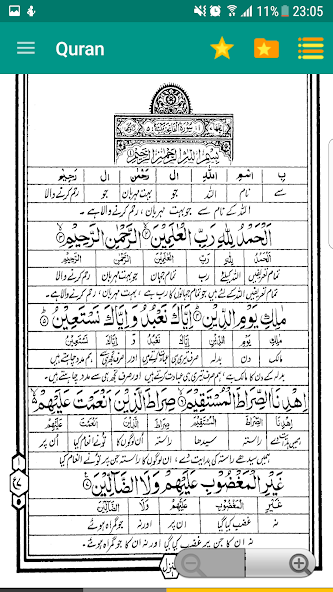 11% 23:05
Quran
بِسْمِ اللهِ الرَّحْمٰنِ الرَّحِيْمِ
بِ اِسْمِ اللهِ ال رَحْمٰنِ ال رَحِيْمِ
سے نام اللہ جو بہت مہربان جو رحم کرنے والا
اللہ کے نام سے جو بہت مہربان، رحم کرنے والا ہے۔
اَلْحَمْدُ لِلّٰهِ رَبِّ الْعٰلَمِيْنَ الرَّحْمٰنِ الرَّحِيْمِ
اَلْحَمْدُ لِلّٰهِ رَبِّ الْعٰلَمِيْنَ الرَّحْمٰنِ الرَّحِيْمِ
تمام تعریفیں اللہ کیلئے رب تمام جہان جو بہت مہربان رحم کرنے والا
تمام تعریفیں اللہ کے لئے ہیں جو تمام جہانوں کا رب ہے، بہت مہربان، رحم کرنے والا ہے۔
مٰلِكِ يَوْمِ الدِّيْنِ اِيَّاكَ نَعْبُدُ وَاِيَّاكَ نَسْتَعِيْنُ
مٰلِكِ يَوْمِ الدِّيْنِ اِيَّاكَ نَعْبُدُ وَ اِيَّاكَ نَسْتَعِيْنُ
مالک دن بدلہ صرف تیری ہی اور ہم مدد چاہتے ہیں
بدلہ کے دن کا مالک ہے، ہم صرف تیری ہی عبادت کرتے ہیں اور صرف تجھ ہی سے مدد چاہتے ہیں۔
اِهْدِنَا الصِّرَاطَ الْمُسْتَقِيْمَ صِرَاطَ الَّذِيْنَ اَنْعَمْتَ عَلَيْهِمْ
اِهْدِنَا الصِّرَاطَ الْمُسْتَقِيْمَ صِرَاطَ الَّذِيْنَ اَنْعَمْتَ عَلَيْهِمْ
راستہ سیدھا راستہ ان لوگوں کا تو نے انعام کیا اُن پر
ہمیں سیدھے راستہ کی ہدایت دے، ان لوگوں کا راستہ جن پر تو نے انعام کیا
غَيْرِ الْمَغْضُوْبِ عَلَيْهِمْ وَلَا الضَّآلِّيْنَ
غَيْرِ الْمَغْضُوْبِ عَلَيْهِمْ وَلَا الضَّآلِّيْنَ
نہ غضب کیا گیا ان پر اور نہ جو گمراہ ہوئے
نہ ان کا جن پر غضب کیا گیا اور نہ ان کا جو گمراہ ہوئے۔